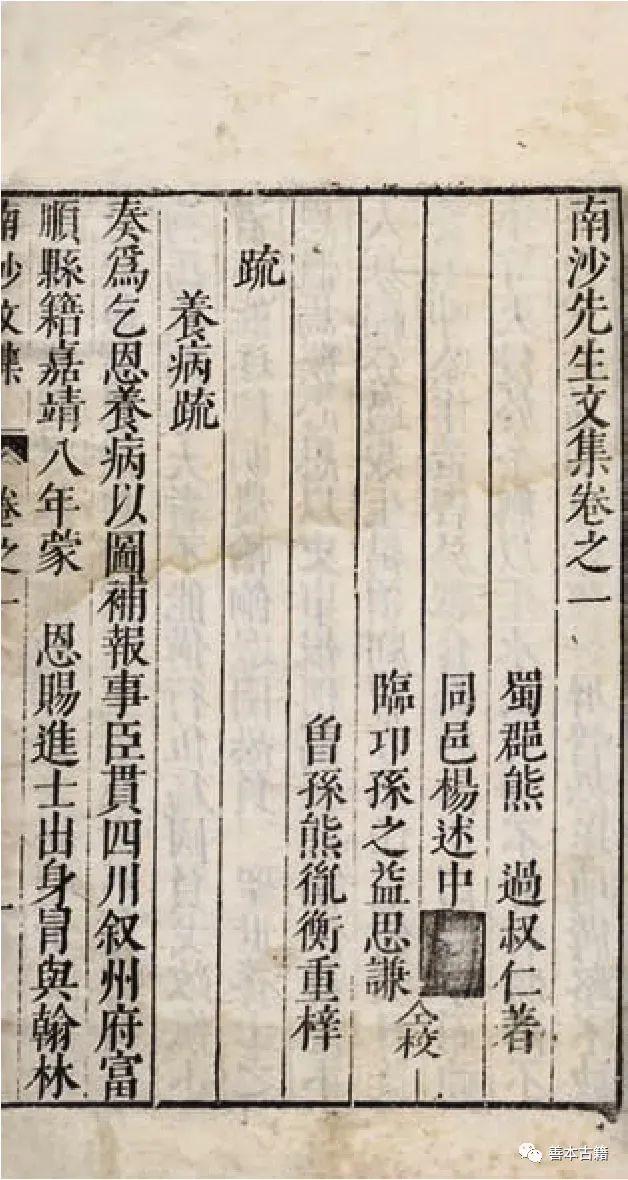 南沙先生文集卷之一
蜀郡熊　過叔仁著
同邑楊述中
臨邛孫之益思謙
仝校
曾孫熊胤衡重梓
疏
養病疏
奏爲乞恩養病以圖補報事臣貫四川叙州府富
順縣籍嘉靖八年蒙　恩賜進士出身冐與翰林
南沙文集　卷之一　一
善本古籍